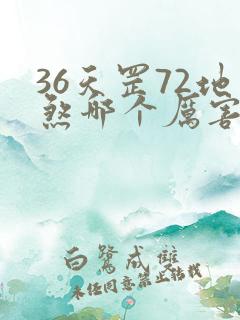 36天罡72地
煞哪个厉害
白鹭成双
未经同意禁止转载